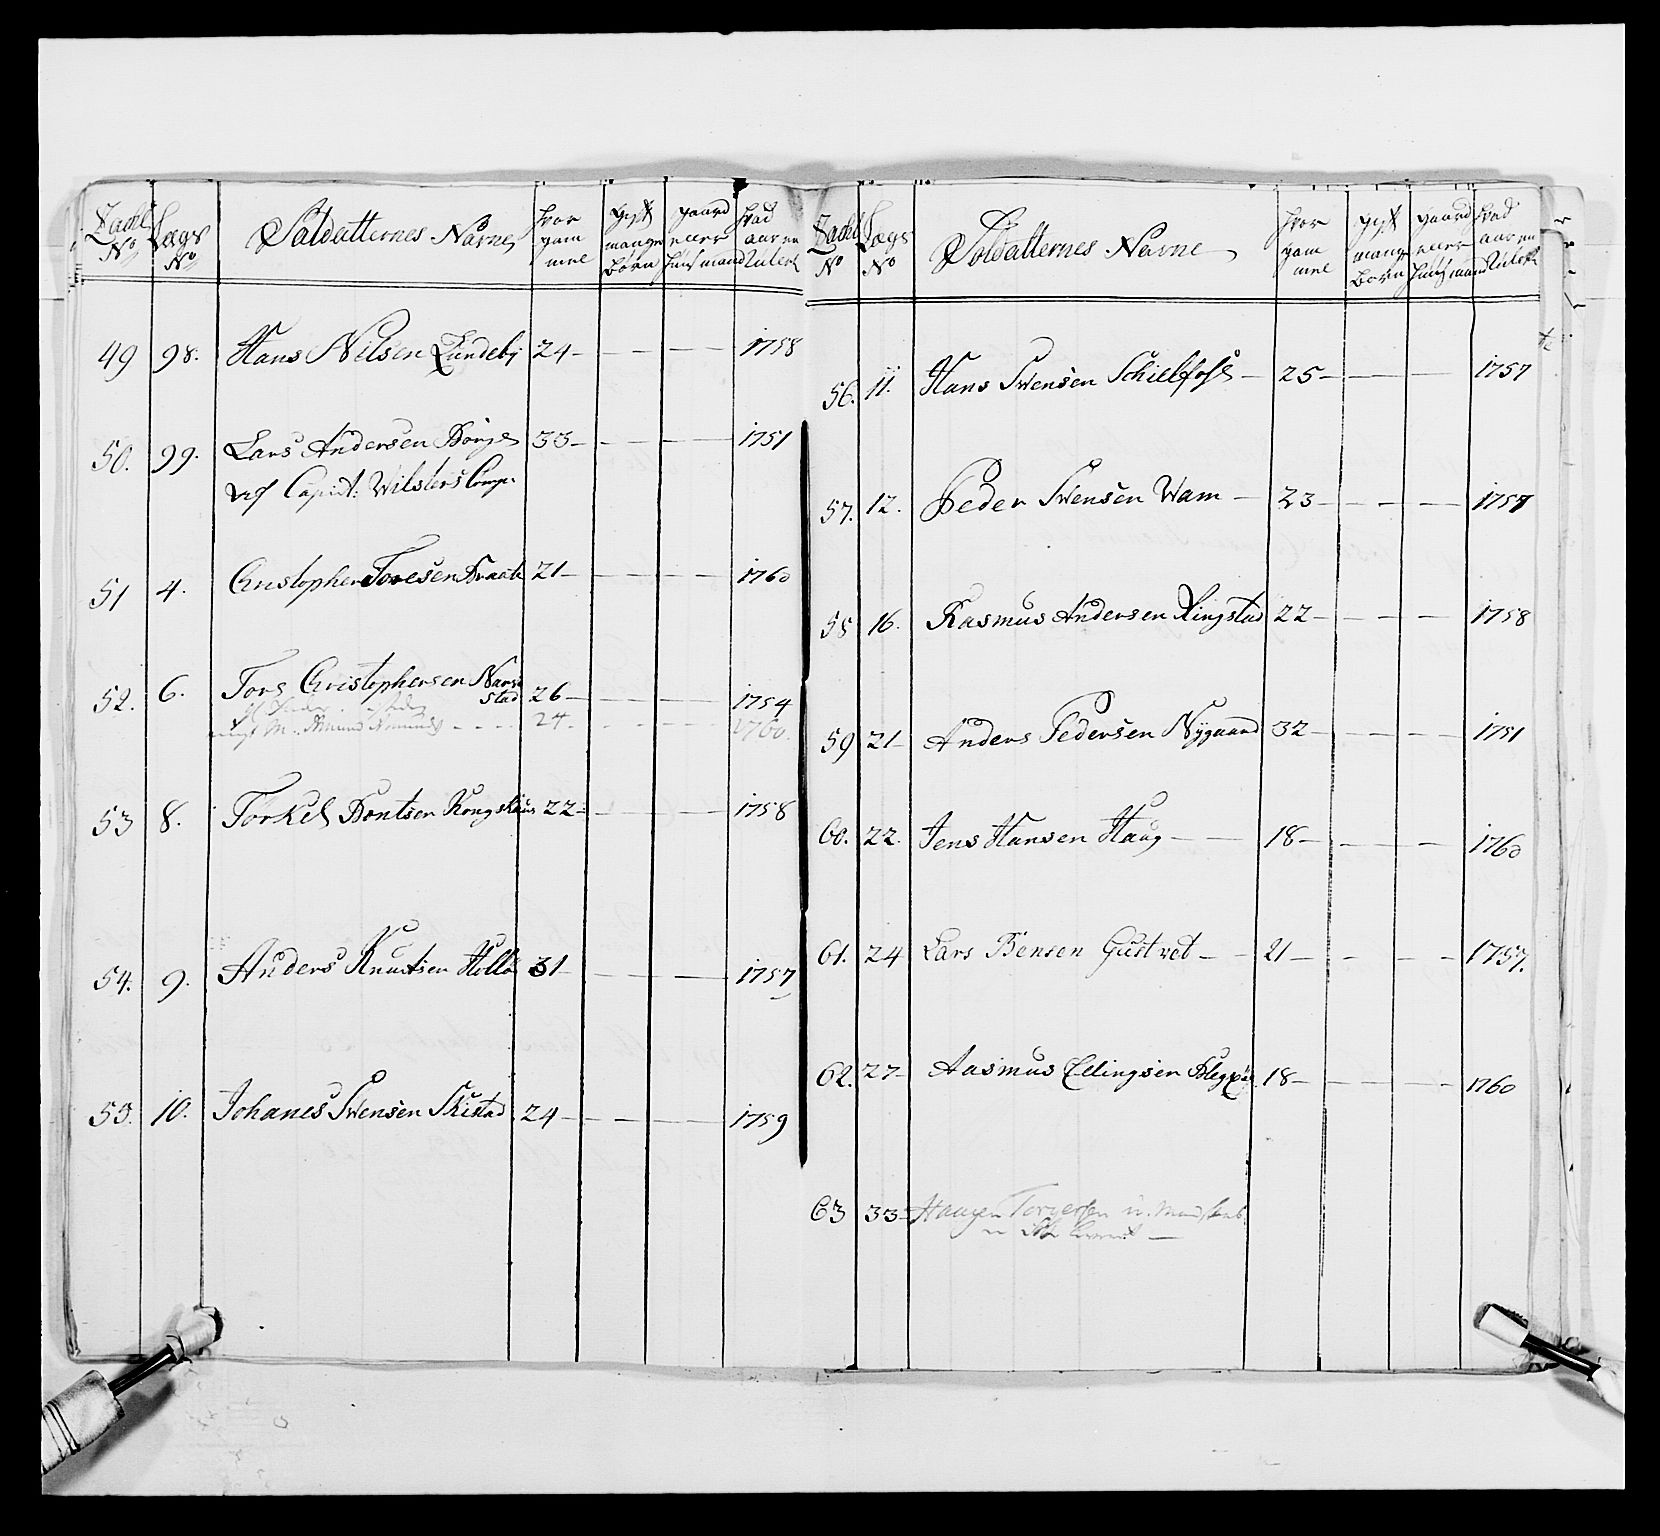 Tachl No Lægs No Saldatternes Navne hvor gam mel gift mange børn gaard eller huusmand hvad aar en Rulert
49 98. Hans Nilsen Lundebÿ 24 – – – 1758
50. 99. Lars Andersen Børge 33 – – – 1751
af Capit: Wilsters Comp:
51 4. Christopher Toresen Braate 21 – – – 1760
52. 6. Tors Christophersen Narve 26 – – – 1754
stad
24 – – – 1760.
53 8. Torkel Bentsen Kongshaus 22 – – – 1758
54. 9. Anders Knutsen Holle 31 – – – 1757
55. 10. Johanes Swensen Skistad 24 – – – 1759
Tachl No Lægs No Soldatternes Navne hvor gam mel gift mange børn gaard eller huusmand hvad aar en Rulert
56. 11. Hans Swensen Schielfoss – 25 – – – 1757
57. 12. Peder Swensen Wam – 23 – – – 1757
58 16. Rasmus Andersen Ringstad 22 – – – 1758
59 21 Anders Pedersen Nÿgaard 32 – – – 1751
60. 22. Jens Hansen Haug – – 18 – – – 1760
61. 24 Lars Bensen – – 21 – – – 1757.
62. 27 Aasmus Ellingsen 18 – – – 1760
63 33 Haagen Torgersen